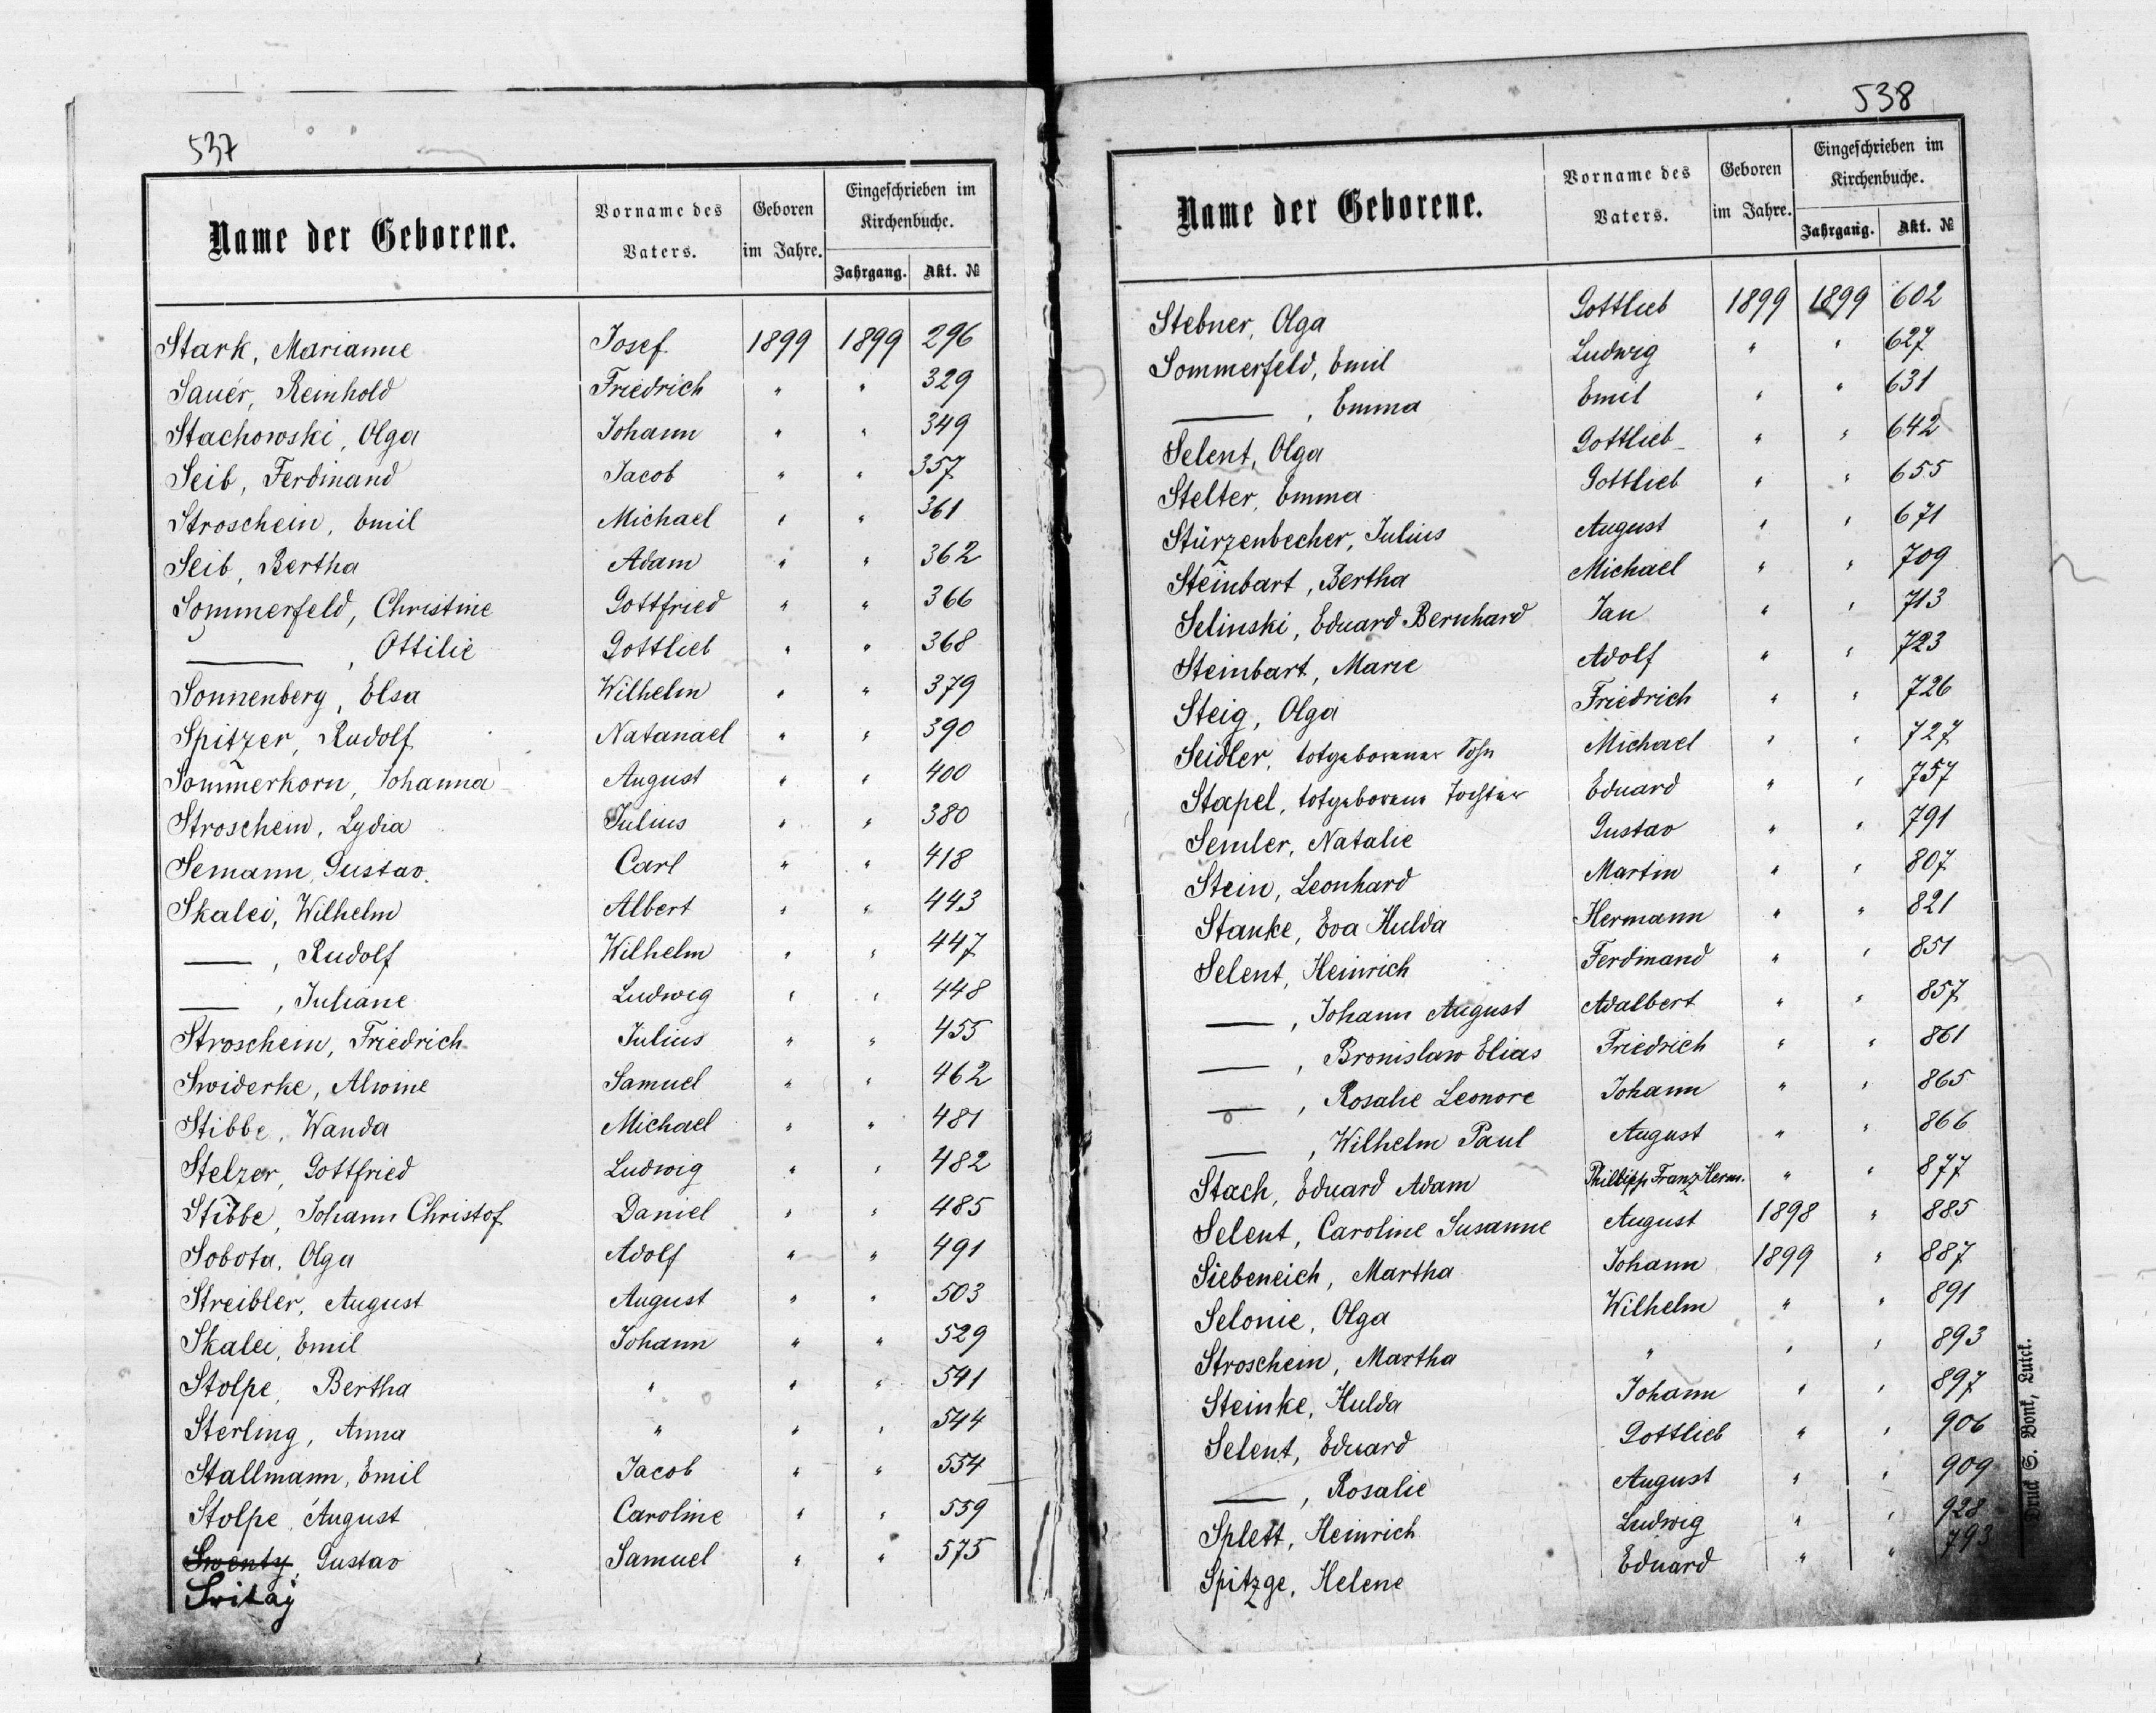 537
Name der Geborene. Vorname des Vaters. Geboren im Jahre. Eingeschrieben im Kirchenbuche. Jahrgang. Akt. №
Stark, Marianne Josef 1899 1899 296
Sauer, Reinhold Friedrich " " 329
Stachowski, Olga Johann " " 349
Seib, Ferdinand Jacob " " 357
Stroschein, Emil Michael " " 361
Seib, Bertha Adam " " 362
Sommerfeld, Christine Gottfried " " 366
—, Ottilie Gottlieb " " 368
Sonnenberg, Elsa Wilhelm " " 379
Spitzer, Rudolf Natanael " " 390
Sommerkorn, Johanna August " " 400
Stroschein, Lydia Julius " " 380
Semann, Gustav. Carl " " 418
Skalei, Wilhelm Albert " " 443
—, Rudolf Wilhelm " " 447
—, Juliane Ludwig " " 448
Stroschein, Friedrich Julius " " 455
Swiderke, Alwine Samuel " " 462
Stibbe, Wanda Michael " " 481
Stelzer, Gottfried Ludwig " " 482
Stibbe, Johann Christof Daniel " " 485
Sobota, Olga Adolf " " 491
Streibler, August August " " 503
Skalei, Emil Johann " " 529
Stolpe, Bertha " " " 541
Sterling, Anna " " " 544
Stallmann, Emil Jacob " " 554
Stolpe, August Caroline " " 559
Swenty, Gustav Samuel " " 575
538
Name der Geborene. Vorname des Vaters. Geboren im Jahre. Eingeschrieben im Kirchenbuche. Jahrgang. Akt. №
Stebner, Olga Gottlieb 1899 1899 602
Sommerfeld, Emil Ludwig " " 627
—, Emma Emil " " 631
Selent, Olga Gottlieb " " 642
Stelter, Emma Gottlieb " " 655
Stürzenbecher, Julius August " " 671
Steinbart, Bertha Michael " " 709
Selinski, Eduard Bernhard Jan " " 713
Steinbart, Marie Adolf " " 723
Steig, Olga Friedrich " " 726
Seidler, totgeborener Sohn Michael " " 727
Stapel, totgeborene Tochter Eduard " " 757
Semler, Natalie Gustav " " 791
Stein, Leonhard Martin " " 807
Stanke, Eva Hulda Hermann " " 821
Selent, Heinrich Ferdinand " " 851
—, Johann August Adalbert " " 857
—, Bronislaw Elias Friedrich " " 861
—, Rosalie Leonore Johann " " 865
—, Wilhelm Paul August " " 866
Stach, Eduard Adam Phillipp Franz Herm. " " 877
Selent, Caroline Susanne August 1898 " 885
Siebeneich, Martha Johann 1899 " 887
Selonie, Olga Wilhelm " " 891
Stroschein, Martha " " " 893
Steinke, Hulda Johann " " 897
Selent, Eduard Gottlieb " " 906
—, Rosalie August " " 909
Splett, Heinrich Ludwig " " 928
Spitzge, Helene Eduard " " 793